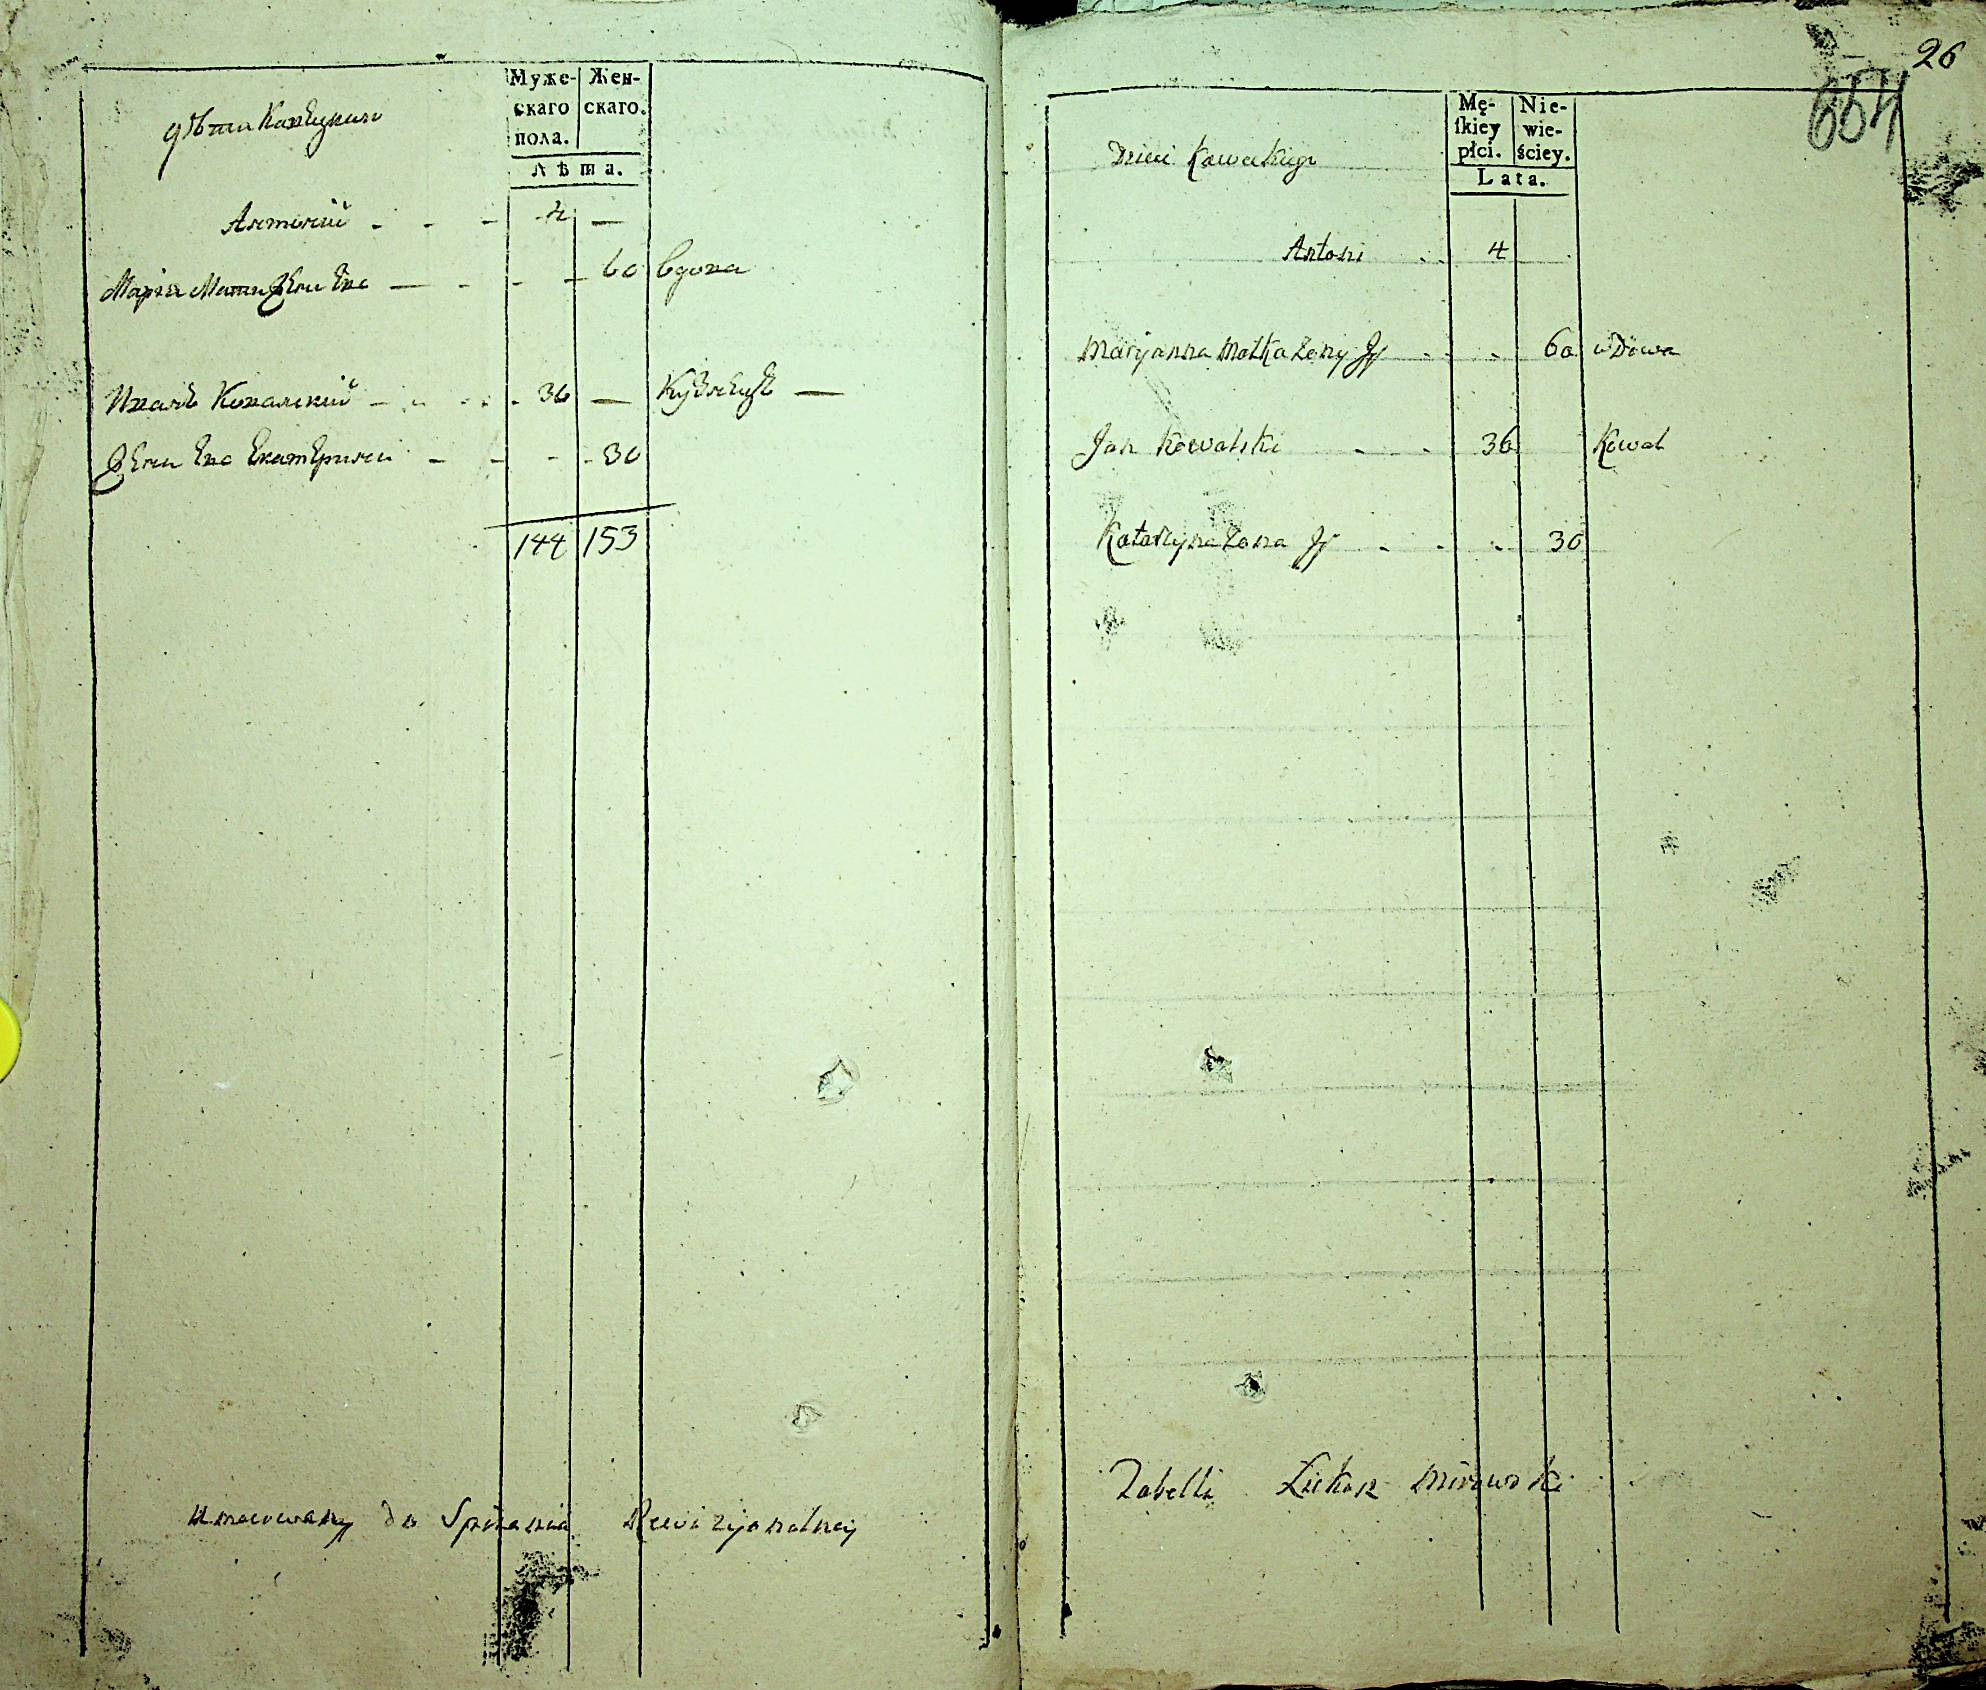 Муже- Жен-
скаго скаго.
пола.
Лѣта.
дѣти Кавецкаго
Антоній - - - 4 —
Марія Мати Жены Его — - - - 60 вдова
Иванъ Ковалскій - - - - 36 — Кузнецъ —
Жена Его Екатерина - - - - 30
144 153
Umocowany do Spisania Rewizyonalney
26
654
Mę- Nie-
ſkiey wie-
płci. ściey.
Lata.
Dzieci Kaweckiego
Antoni - - 4
Maryanna Matka Żony Jj - - - 60 wdowa
Jan Kowalski - - - 36 Kowal
Katarzyna Żona Jj - - - 30
Tabelli Łukasz